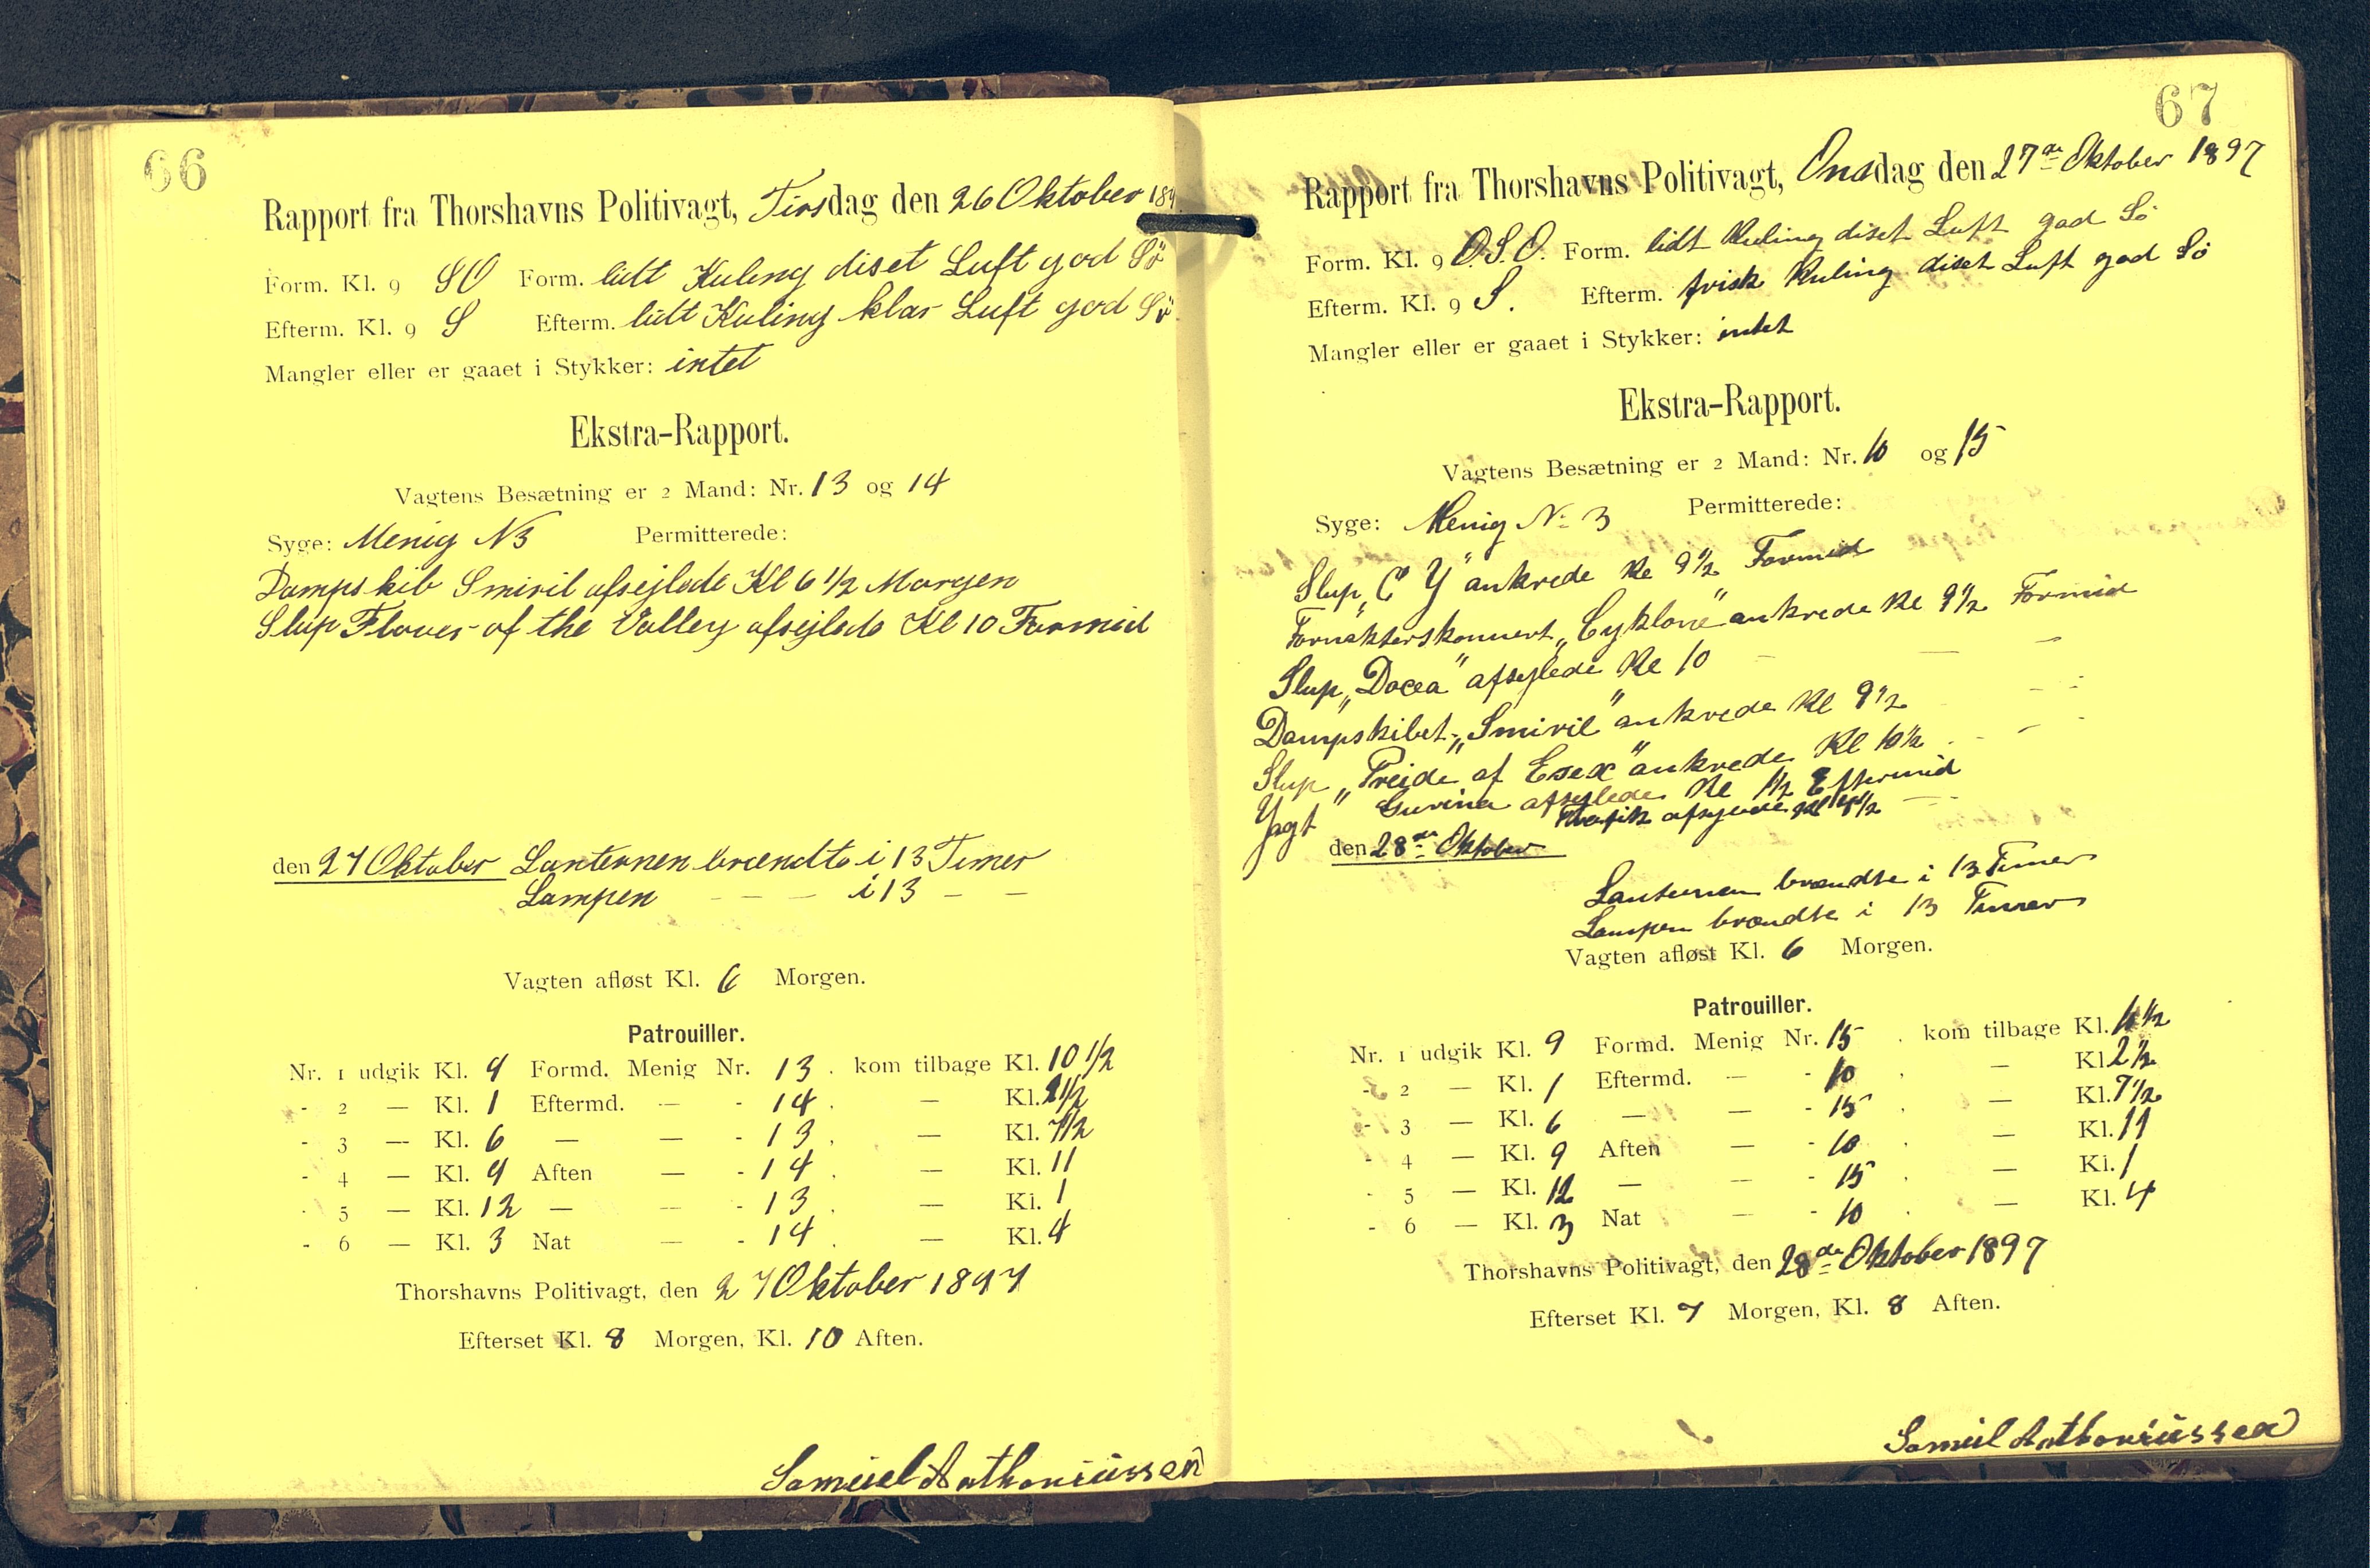 66
Rapport fra Thorshavns Politivagt, Tirsdag den 26 Oktober 189
Form. Kl. 9 SO Form. lidt Kuling diset Luft god Sö
Efterm. Kl. 9 S Efterm. lidt Kuling klar Luft god Sö
Mangler eller er gaaet i Stykker: intet
Ekstra-Rapport.
Vagtens Besætning er 2 Mand: Nr. 13 og 14
Syge: Menig N 3 Permitterede:
Dampskib Smiril afsejlede Kl 6 1/2 Morgen
Slup Flower of the Valley afsejlede Kl 10 Formid
den 27 Oktober Lanternen brændte i 13 Timer
Lampen – – – i 13 – –
Vagten afløst Kl. 6 Morgen.
Patrouiller.
Nr. 1 udgik Kl. 9 Formd. Menig Nr. 13 . kom tilbage Kl. 10 1/2
- 2 — Kl. 1 Eftermd. — - 14 . — Kl. 2 1/2
- 3 — Kl. 6 — — - 13 . — Kl. 7 1/2
- 4 — Kl. 9 Aften — - 14 . — Kl. 11
- 5 — Kl. 12 — — - 13 . — Kl. 1
- 6 — Kl. 3 Nat — - 14 . — Kl. 4
Thorshavns Politivagt, den 27 Oktober 1897
Efterset Kl. 8 Morgen, Kl. 10 Aften.
Samuel Anthoniussen
67
Rapport fra Thorshavns Politivagt, Onsdag den 27de Oktober 1897
Form. Kl. 9 O.S.O. Form. lidt Kuling diset Luft god Sö
Efterm. Kl. 9 S. Efterm. frisk Kuling diset Luft god Sö
Mangler eller er gaaet i Stykker: intet
Ekstra-Rapport.
Vagtens Besætning er 2 Mand: Nr. 10 og 15
Syge: Menig No 3 Permitterede:
Slup „C Y" ankrede Kl 9 1/2 Formid
„Cyklone" ankrede Kl 9 1/2 Formid
Slup „Docea" afsejlede Kl 10 — — —
Dampskibet „Smiril" ankrede Kl 9 1/2 - -
Slup „Preide af Esex" ankrede Kl 10 1/2 - - -
Jagt Gurina afsejlede Kl 1/2 Eftermid
afsejlede Kl —
den 28de Oktober
Lanternen brændte i 13 Timer
Lampen brændte i 13 Timer
Vagten afløst Kl. 6 Morgen.
Patrouiller.
Nr. 1 udgik Kl. 9 Formd. Menig Nr. 15 . kom tilbage Kl. 1/2
- 2 — Kl. 1 Eftermd. — - 10 . — Kl. 2 1/2
- 3 — Kl. 6 — — - 15 . — Kl. 7 1/2
- 4 — Kl. 9 Aften — - 10 . — Kl. 11
- 5 — Kl. 12 — — - 15 . — Kl. 1
- 6 — Kl. 3 Nat — - 10 . — Kl. 4
Thorshavns Politivagt, den 28de Oktober 1897
Efterset Kl. 7 Morgen, Kl. 8 Aften.
Samuel Anthoniussen